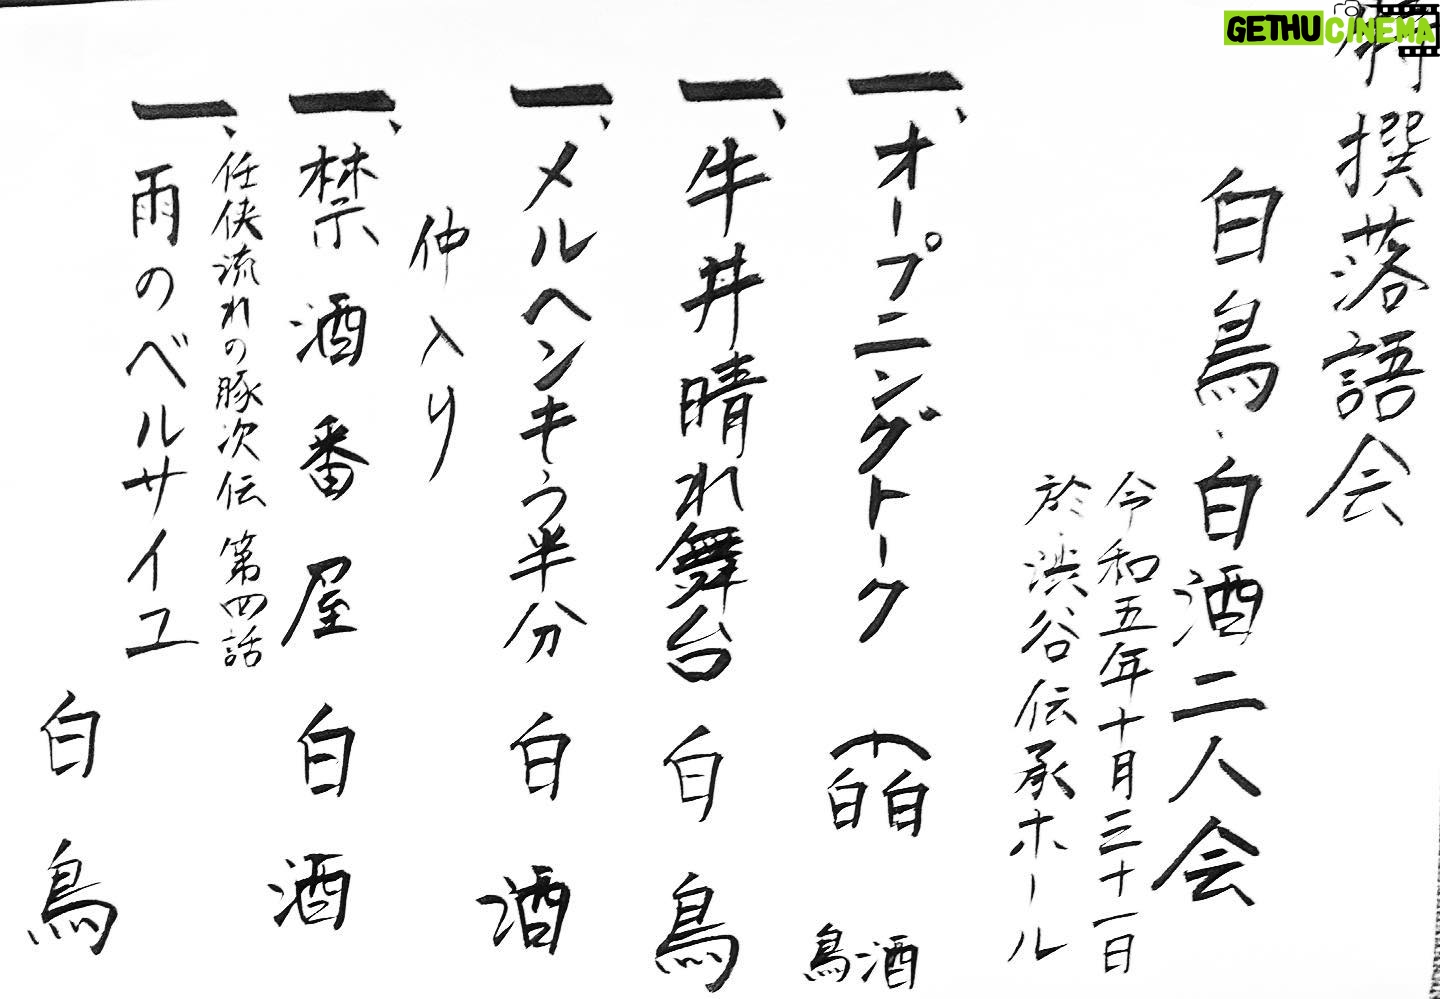 GETHU CINEMA
特撰落語会
白鳥・白酒二人会
令和五年十月三十一日
於・渋谷伝承ホール
一、オープニングトーク
白酒
白鳥
一、牛丼晴れ舞台 白鳥
一、メルヘンもう半分 白酒
仲入り
一、禁酒番屋 白酒
任侠流れの豚次伝 第四話
一、雨のベルサイユ 白鳥